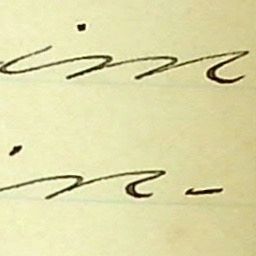 im
in-